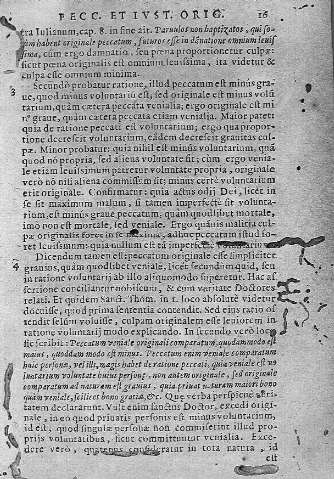 PECC. ET IVST. ORIG. 16
tra Iulianum, cap. 8. in fine ait. Paruulos non baptizatos, qui so-
lum habent originale peccatum, futuros esse in dānatione omnium leuis-
sima, cùm ergo damnatio, seu pœna proportionetur culpæ:
sicut pœna originalis est omnium leuissima, ita videtur &
culpa esse omnium minima.
3 Secundò probatur ratione, illud peccatum est minùs gra-
ue, quod minùs voluntariū est, sed originale est minùs volū
tarium, quàm cætera peccata venialia; ergo originale est mi-
nùs graue, quàm cætera peccata etiam venialia. Maior patet:
quia de ratione peccati est voluntarium; ergo qua propor-
tione decrescit voluntarium, eadem decrescit grauitas cul-
pæ. Minor probatur: quia nihil est minùs voluntarium, quā
quod nō propria, sed aliena voluntate sit: cùm ergo venia-
le etiam leuissimum patretur voluntate propria, originale
verò nō nisi aliena commissum sit; minus certè voluntarium
erit originale. Confirmatur: quia actus odij Dei, licèt in
se sit maximum malum, si tamen imperfectè sit volunta-
rium, est minùs graue peccatum, quàm quodlibet mortale,
imo non est mortale, sed veniale. Ergo quāuis malitia cul-
pæ originalis foret in se maxima, adhuc peccatum illud fo-
ret leuissimum: quia nullum est tā imperfectè voluntarium.
4 Dicendum tamen est peccatum originale esse simpliciter
grauius, quàm quodlibet veniale, licèt secundùm quid, seu
in ratione voluntarij ab illo aliquomodo superetur. Hac as-
sertione conciliantur nobiscum, & cum veritate Doctores
relati. Et quidem Sanct. Thom. in 1. loco absolutè videtur
docuisse, quod prima sententia contendit. Sed eius ratio os-
tendit solùm voluisse, culpam originalem esse leuiorem in
ratione voluntarij modo explicando. In secundo verò loco
sic scribit: Peccatum veniale originali comparatum, quodammodo est
maius, quodam modo est minus. Peccatum enim veniale comparatum
huic personæ, vel illi, magis habet de ratione peccati, quia veniale est vo
luntarium voluntate huius personæ, non autem originale, sed originale
comparatum ad naturam est grauius, quia priuat naturam maiori bono
quàm veniale, scilicet bono gratiæ, &c. Quæ verba perspicuè asser-
tatem declararunt. Vult enim sanctus Doctor, excedi origi-
nale, in eo quod priuatis personis est minùs voluntarium,
id est, quod singulæ personæ non commiserint illud pro-
prijs voluntatibus, sicut committuntur venialia. Exce-
dere verò, quatenus consideratur in tota natura, id
est